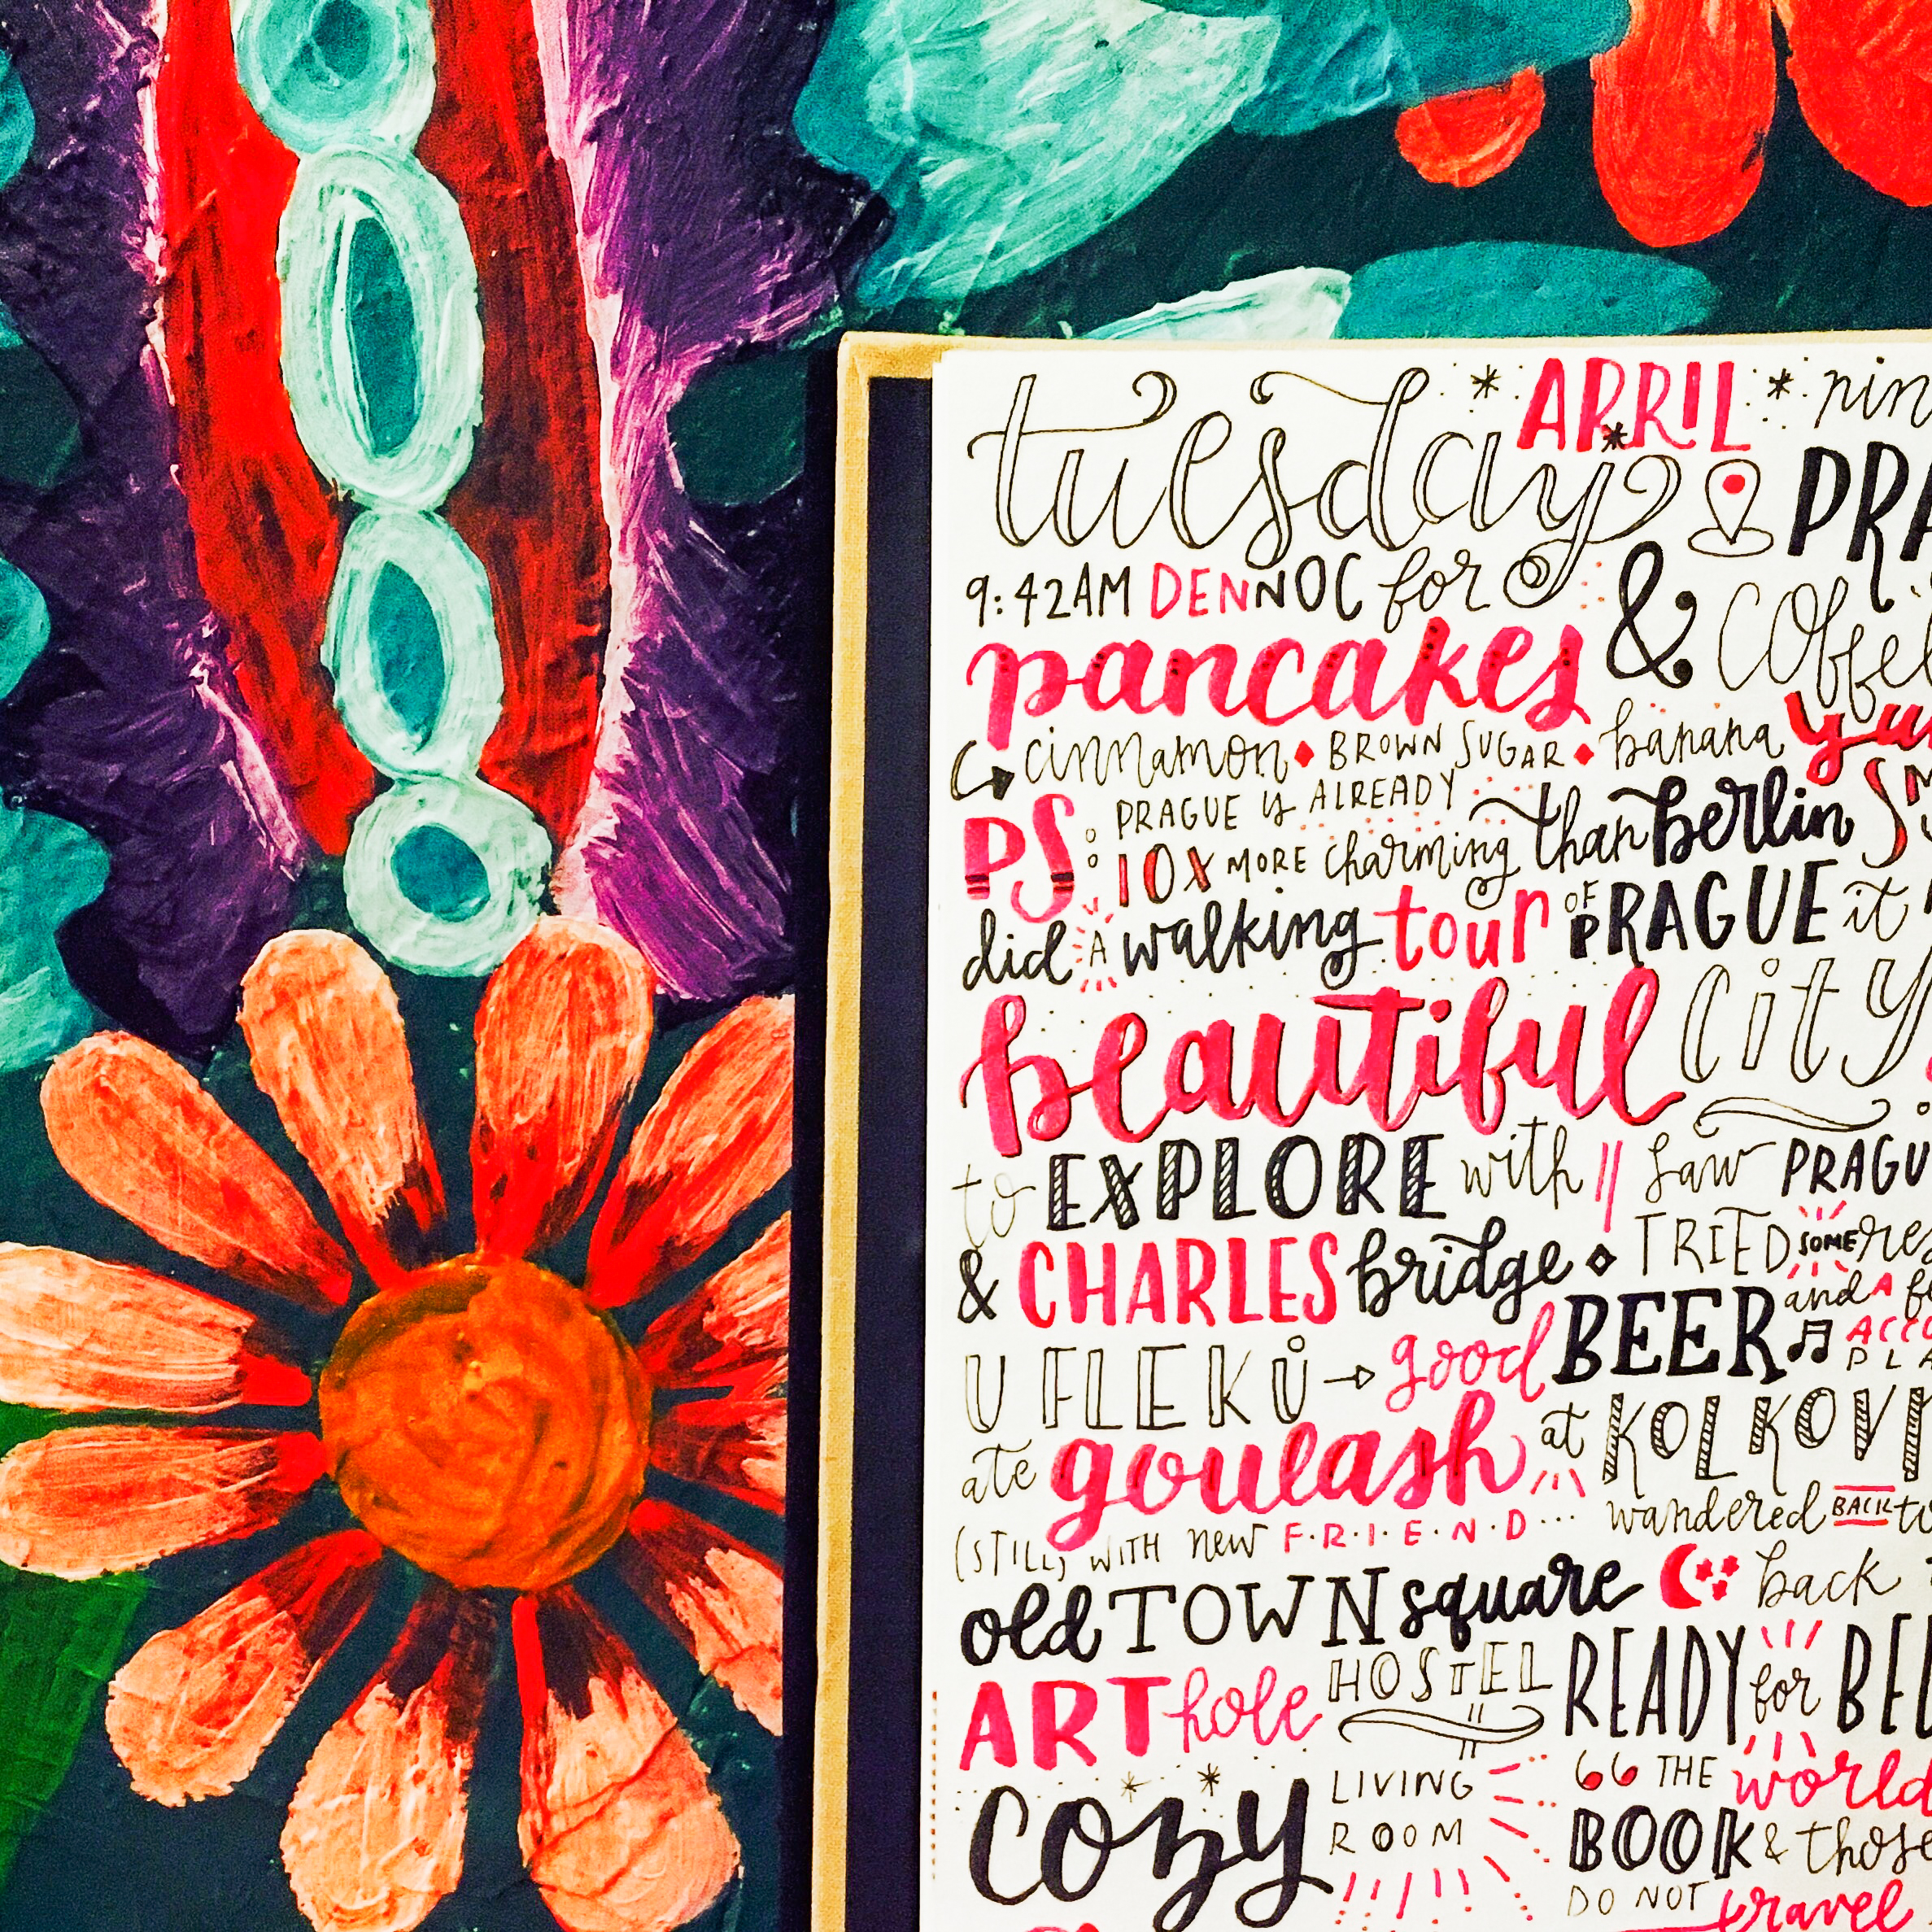 tuesday * APRIL *
9:42AM DENNOC for
pancakes & coffee
cinnamon • BROWN SUGAR • banana
PS: PRAGUE is ALREADY
10X MORE charming than berlin
did A walking tour OF PRAGUE it
beautiful city
to EXPLORE with saw
& CHARLES bridge TRIED SOME
U FLEKŮ → good BEER and A
ate goulash at
(STILL) WITH new F·R·I·E·N·D··· wandered BACK
old TOWN square back
ART hole HOSTEL READY for
cozy LIVING ROOM
“ THE world
BOOK & those
DO NOT travel